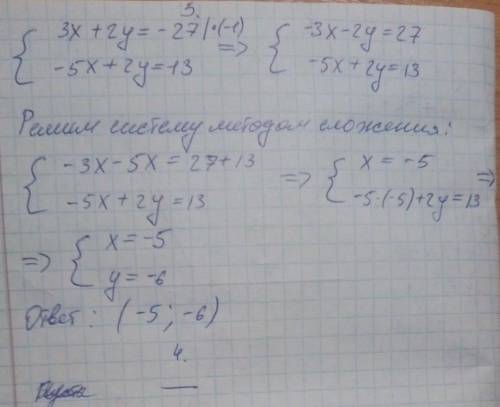 5.
{ 3x + 2y = -27 | · (-1) => { -3x - 2y = 27
-5x + 2y = 13 -5x + 2y = 13
Решим систему методом сложения:
{ -3x - 5x = 27 + 13 => { x = -5
-5x + 2y = 13 -5 · (-5) + 2y = 13 =>
=> { x = -5
y = -6
Ответ: (-5; -6)
4.